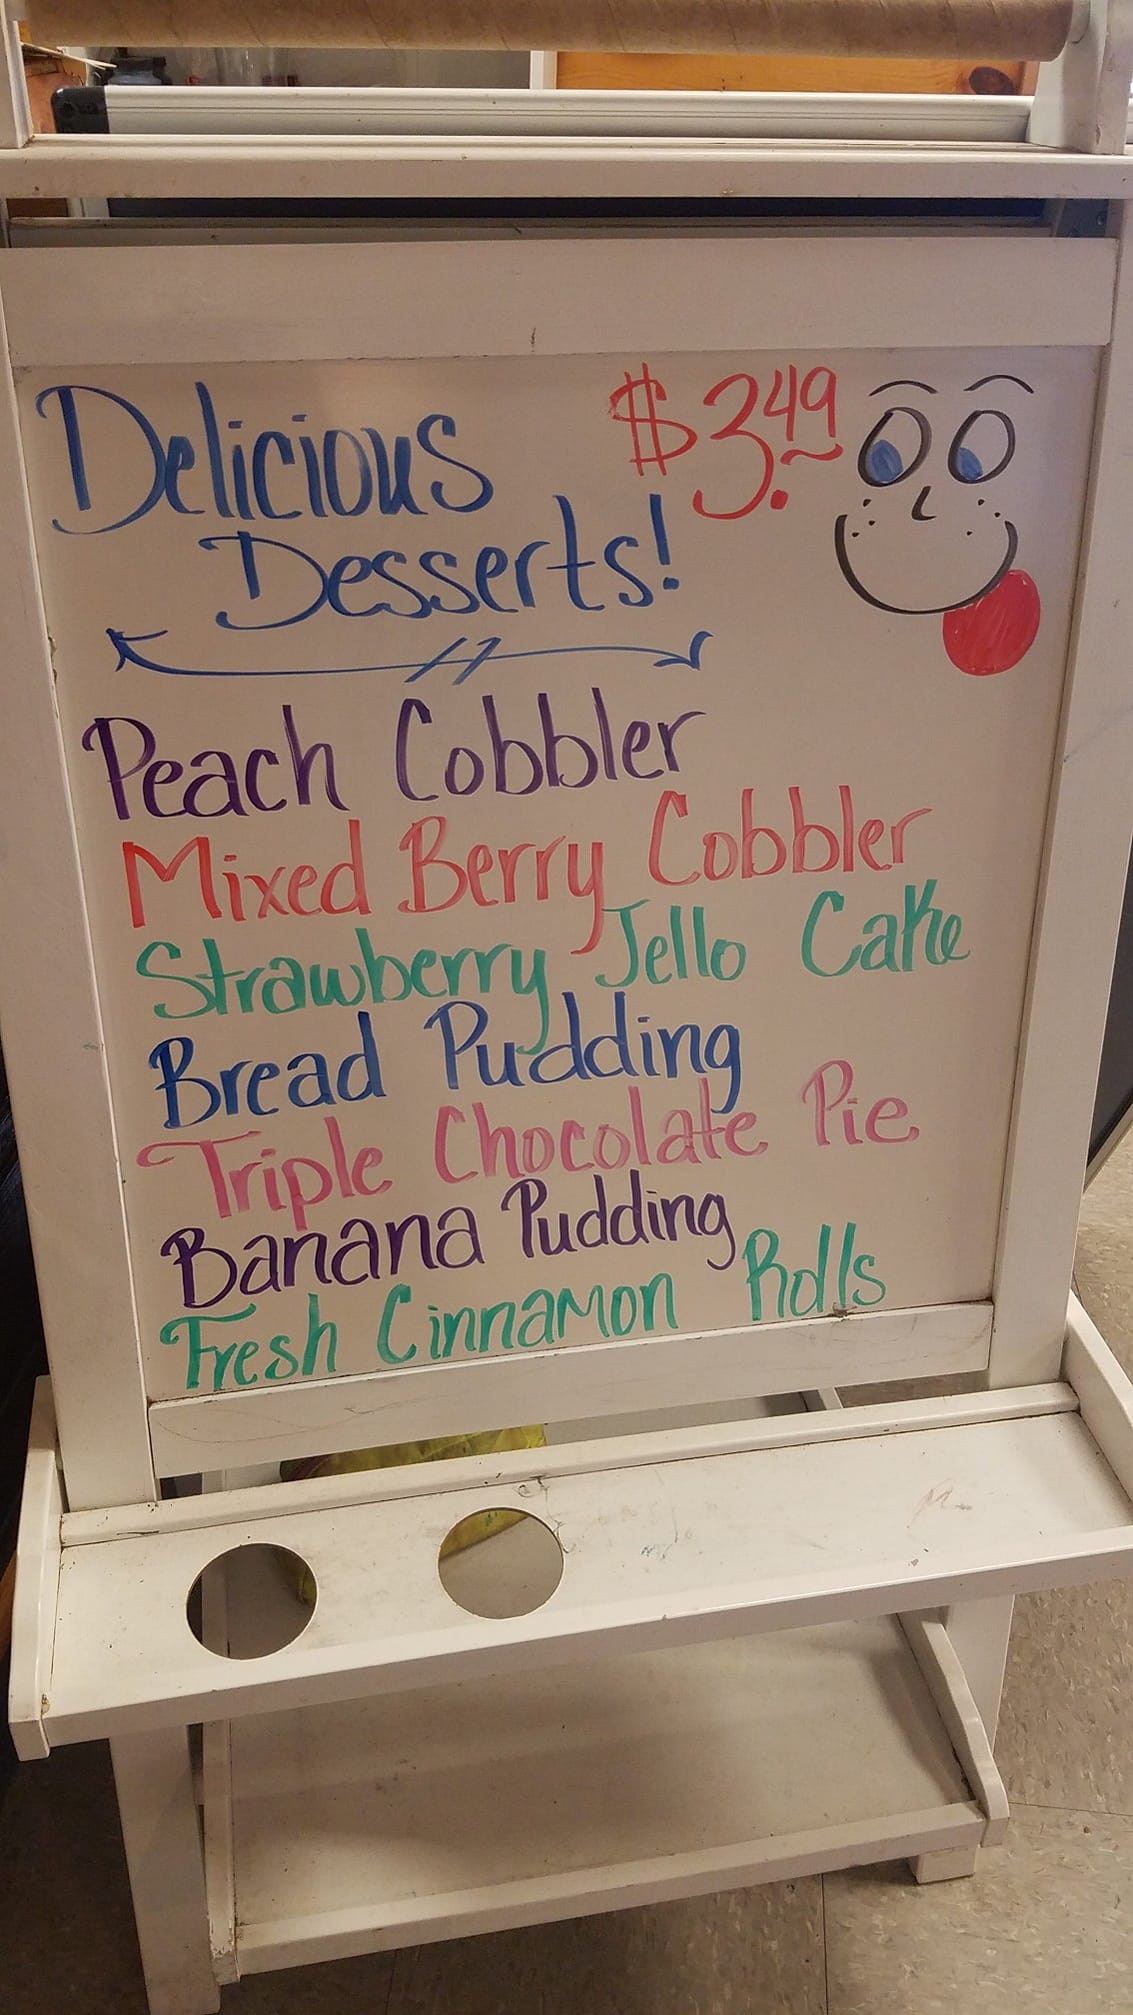 Delicious $3.49
Desserts!
Peach Cobbler
Mixed Berry Cobbler
Strawberry Jello Cake
Bread Pudding
Triple Chocolate Pie
Banana Pudding
Fresh Cinnamon Rolls